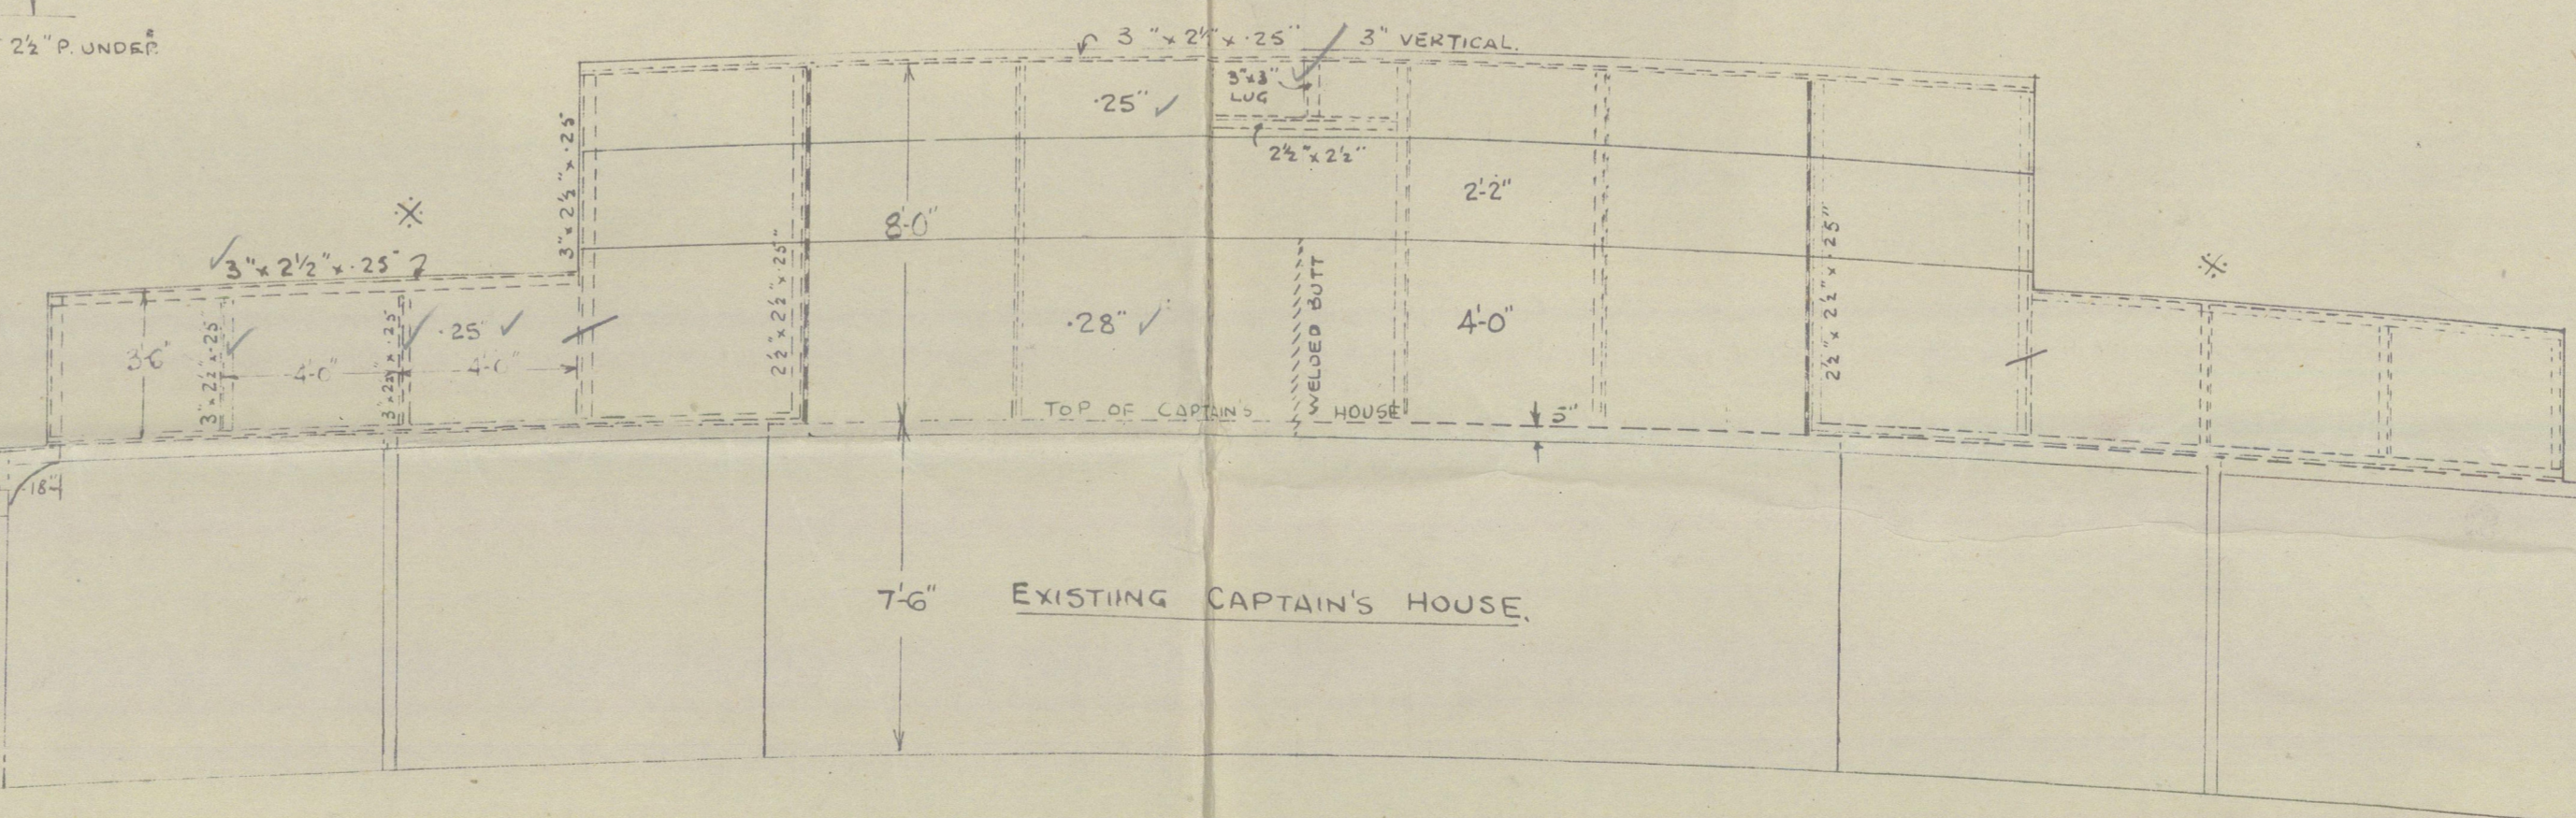 2½" P. UNDER.
3" x 2½" x ·25"
3" VERTICAL.
3"x3"
LUG
·25"
2½" x 2½"
3" x 2½" x ·25
2'-2"
8'-0"
3" x 2½" x ·25"
2½" x 2½" x ·25"
2½" x 2½" x ·25"
WELDED BUTT
·28"
4'-0"
·25
3'-6"
3" x 2½" x ·25
4'-0"
3" x 2½" x ·25
4'-0"
TOP OF CAPTAIN'S HOUSE
5"
18"
7'-6"
EXISTIING CAPTAIN'S HOUSE.